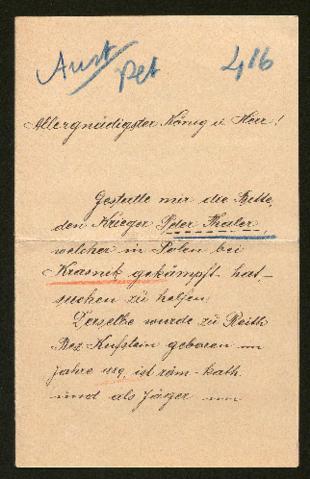 Aust
Pet
416
Allergnädigster König u. Herr!
Gestatte mir die Bitte,
den Krieger Peter Thaler,
welcher in Polen bei
Krasnik gekämpft hat,
suchen zu helfen.
Derselbe wurde zu Reith
Bez Kufstein geboren im
Jahre ist röm-kath.
und als Jäger